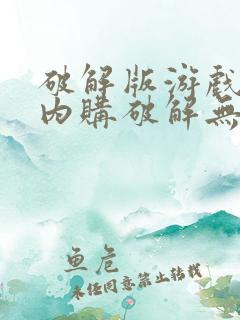 破解版游戏
内購破解無
鱼危
未经同意禁止转载